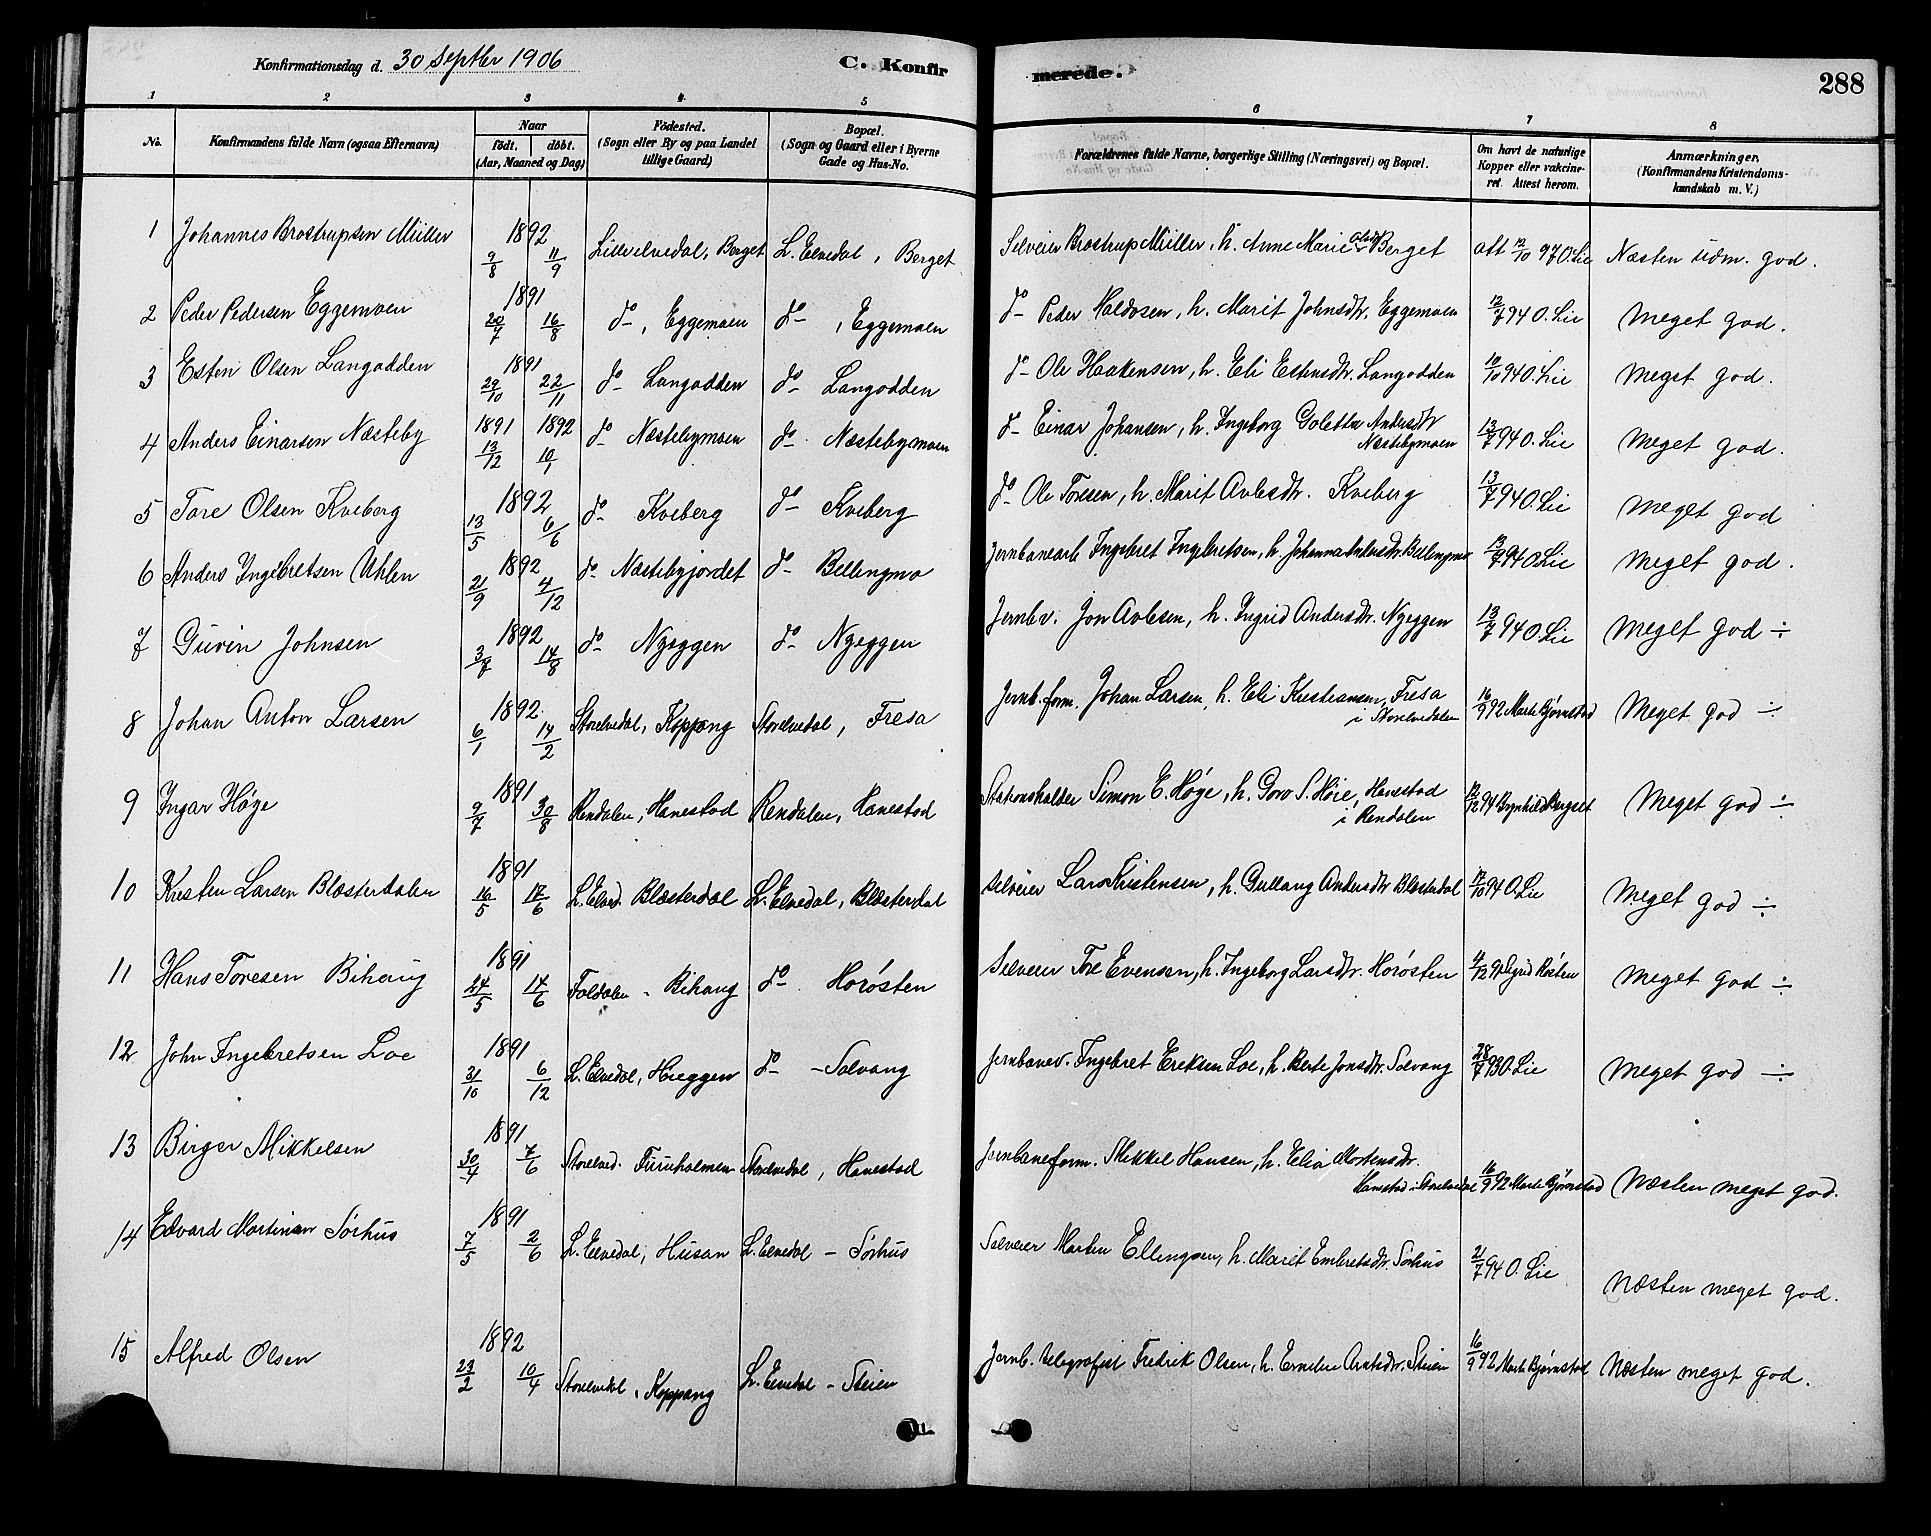 Konfirmationsdag d. 30 Septbr 1906
C. Konfirmerede.
288
1 2 3 4 5 6 7 8
No. Konfirmandens fulde Navn (ogsaa Efternavn) Naar født. døbt. (Aar, Maaned og Dag) Fødested. (Sogn eller By og paa Landet tillige Gaard) Bopæl. (Sogn og Gaard eller i Byerne Gade og Hus-No. Forældrenes fulde Navne, borgerlige Stilling (Næringsvei) og Bopæl. Om havt de naturlige Kopper eller vakcineret. Attest herom. Anmærkninger. (Konfirmandens Kristendomskundskab m. V.)
1 Johannes Brostrupsen Müller 1892 9/8 11/9 Lilleelvedal, Berget L. Elvedal, Berget Selveier Brostrup Müller, h. Anne Marie Olsdtr Berget att 12/10 97 O. Lie Næsten udm. god.
2 Peder Pedersen Eggemoen 1891 20/7 16/8 do , Eggemoen do , Eggemoen do Peder Haldosen, h. Marit Johnsdtr. Eggemoen 12/7 94 O. Lie Meget god.
3 Esten Olsen Langodden 1891 29/10 22/11 do Langodden do Langodden do Ole Haakensen, h. Eli Estensdtr. Langodden 10/10 94 O. Lie Meget god.
4 Anders Einarsen Næsteby 1891 13/12 1892 10/1 do Næstebymoen do Næstebymoen do Einar Johansen, h. Ingeborg Golette Andersdtr Næstebymoen 13/7 94 O. Lie Meget god.
5 Tore Olsen Kveberg 1892 13/5 6/6 do Kveberg do Kveberg do Ole Toresen, h. Marit Avlesdtr. Kveberg 13/7 94 O. Lie Meget god
6 Anders Ingebretsen Uhlen 1892 21/9 4/12 do Næstebyjordet do Bellingmo Jernbanearb Ingebret Ingebretsen, h. Johanna Andersdtr. Bellingmo 13/7 94 O. Lie Meget god.
7 Guvin Johnsen 1892 3/7 14/8 do Nyeggen do Nyeggen Jernbv. Jon Avlesen, h. Ingrid Andersdtr. Nyeggen 13/7 94 O. Lie Meget god ÷
8 Johan Anton Larsen 1892 6/1 14/2 Storelvedal, Koppang Storelvedal, Fresa Jernb. form. Johan Larsen, h. Eli Kristiansen, Fresa i Storelvedalen 16/9 92 Marte Bjørnstad Meget god ÷
9 Ingar Høye 1891 9/7 30/8 Rendalen, Hanestad Rendalen, Hanestad Stationsholder Simon E. Høye, h. Goro S. Høie, Hanestad i Rendalen 12/12 94 Brynhild Bergset Meget god ÷
10 Kristen Larsen Blæsterdalen 1891 16/5 17/6 L. Elvd. Blæsterdal L. Elvedal, Blæsterdal Selveier Lars Kristensen, h. Gullaug Andersdtr Blæsterdal 17/10 94 O. Lie Meget god ÷
11 Hans Toresen Bihaug 1891 24/5 14/6 Foldalen - Bihaug do Horøsten Selveier Tore Evensen, h. Ingeborg Larsdtr. Horøsten Sigrid Røsten Meget god ÷
12 John Ingebretsen Loe 1891 31/10 6/12 L. Elvedal, Hueggen do - Solvang Jernbanev. Ingebret Eriksen Loe, h. Berte Jonsdtr. Solvang 28/7 93 O. Lie Meget god ÷
13 Birger Mikkelsen 1891 30/4 7/6 Storelvd. Furuholmen Storelvedal, Hanestad Jernbaneform. Mikkel Hansen, h. Elia Mortensdtr. Hanestad i Storelvedal 16/9 92 Marte Bjørnstad Næsten meget god.
14 Edvard Martinsen Sørhus 1891 7/5 2/6 L. Elvedal, Husan L. Elvedal - Sørhus Selveier Martin Ellingsen, h. Marit Embretsdtr. Sørhus 21/7 94 O. Lie Næsten meget god.
15 Alfred Olsen 1892 23/2 10/4 Storelvedal, Koppang L. Elvedal - Steien Jernb. telegrafist Fredrik Olsen, h. Steien 16/9 92 Marte Bjørnstad Næsten meget god.